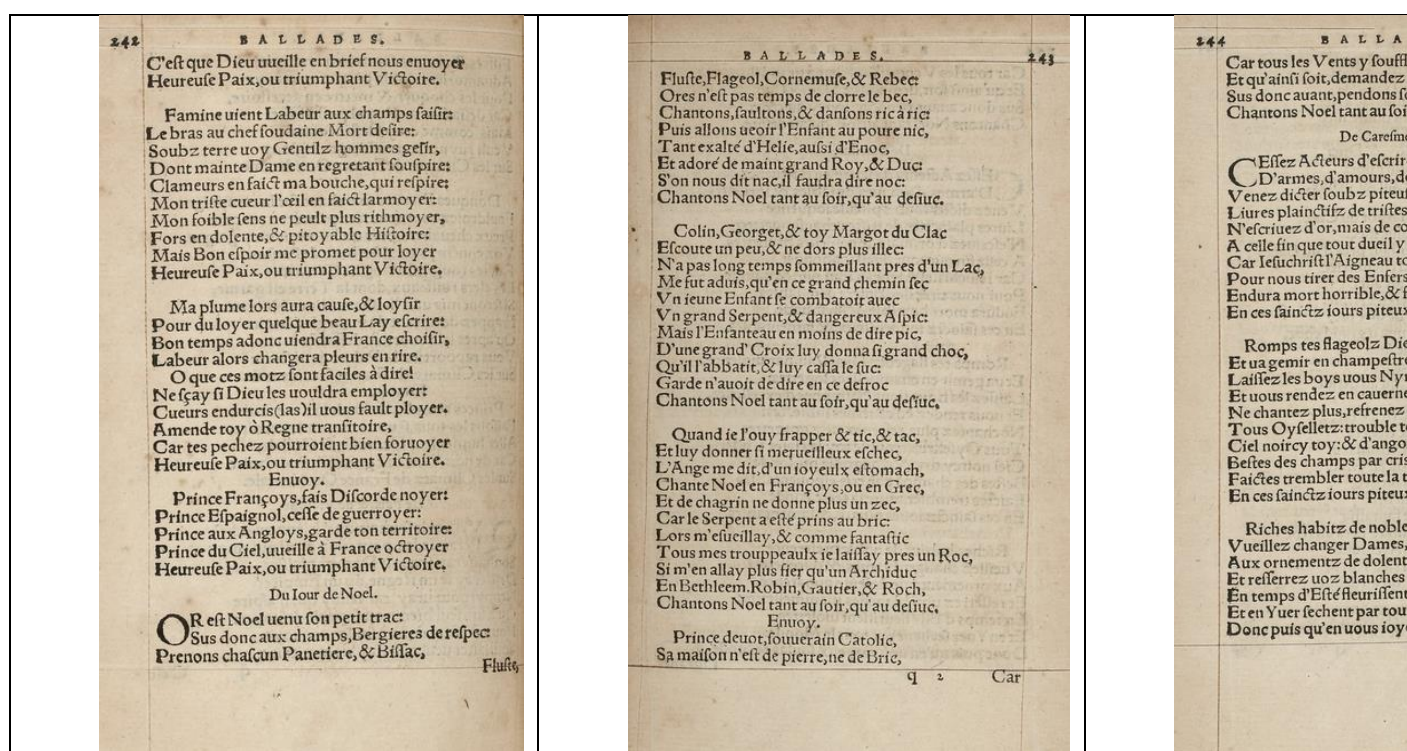 242 BALLADES.
C'eſt que Dieu uueille en brief nous enuoyer
Heureuſe Paix, ou triumphant Victoire.
Famine uient Labeur aux champs ſaiſir:
Le bras au chef ſoudaine Mort deſire:
Soubz terre uoy Gentilz hommes geſir,
Dont mainte Dame en regretant ſouſpire:
Clameurs en faict ma bouche, qui reſpire:
Mon triſte cueur l'œil en faict larmoyer:
Mon foible ſens ne peult plus rithmoyer,
Fors en dolente, & pitoyable Hiſtoire:
Mais Bon eſpoir me promet pour loyer
Heureuſe Paix, ou triumphant Victoire.
Ma plume lors aura cauſe, & loyſir
Pour du loyer quelque beau Lay eſcrire:
Bon temps adonc uiendra France choiſir,
Labeur alors changera pleurs en rire.
O que ces motz ſont faciles à dire!
Ne ſçay ſi Dieu les uouldra employer:
Cueurs endurcis (las) il uous fault ployer.
Amende toy ò Regne tranſitoire,
Car tes pechez pourroient bien foruoyer
Heureuſe Paix, ou triumphant Victoire.
Enuoy.
Prince Françoys, fais Diſcorde noyer:
Prince Eſpaignol, ceſſe de guerroyer:
Prince aux Angloys, garde ton territoire:
Prince du Ciel, uueille à France octroyer
Heureuſe Paix, ou triumphant Victoire.
Du Iour de Noel.
OR eſt Noel uenu ſon petit trac:
Sus donc aux champs, Bergieres de reſpec:
Prenons chaſcun Panetiere, & Biſſac,
Fluſte,
BALLADES. 243
Fluſte, Flageol, Cornemuſe, & Rebec:
Ores n'eſt pas temps de clorre le bec,
Chantons, ſaultons, & danſons ric à ric:
Puis allons ueoir l'Enfant au poure nic,
Tant exalté d'Helie, auſsi d'Enoc,
Et adoré de maint grand Roy, & Duc:
S'on nous dit nac, il faudra dire noc:
Chantons Noel tant au ſoir, qu'au deſiuc.
Colin, Georget, & toy Margot du Clac
Eſcoute un peu, & ne dors plus illec:
N'a pas long temps ſommeillant pres d'un Lac,
Me fut aduis, qu'en ce grand chemin ſec
Vn ieune Enfant ſe combatoit auec
Vn grand Serpent, & dangereux Aſpic:
Mais l'Enfanteau en moins de dire pic,
D'une grand' Croix luy donna ſi grand choc,
Qu'il l'abbatit, & luy caſſa le ſuc:
Garde n'auoit de dire en ce defroc
Chantons Noel tant au ſoir, qu'au deſiuc.
Quand ie l'ouy frapper & tic, & tac,
Et luy donner ſi merueilleux eſchec,
L'Ange me dit, d'un ioyeulx eſtomach,
Chante Noel en Françoys, ou en Grec,
Et de chagrin ne donne plus un zec,
Car le Serpent a eſté prins au bric:
Lors m'eſueillay, & comme fantaſtic
Tous mes trouppeaulx ie laiſſay pres un Roc,
Si m'en allay plus fier qu'un Archiduc
En Bethleem. Robin, Gautier, & Roch,
Chantons Noel tant au ſoir, qu'au deſiuc.
Enuoy.
Prince deuot, ſouuerain Catolic,
Sa maiſon n'eſt de pierre, ne de Bric,
q 2 Car
244 BALLA
Car tous les Vents y ſouffl
Et qu'ainſi ſoit, demandez
Sus donc auant, pendons ſ
Chantons Noel tant au ſoi
De Careſme
CEſſez Acteurs d'eſcrir
D'armes, d'amours, d
Venez dicter ſoubz piteuſ
Liures plainctifz de triſtes
N'eſcriuez d'or, mais de co
A celle fin que tout dueil y
Car Ieſuchriſt l'Aigneau to
Pour nous tirer des Enfers
Endura mort horrible, & f
En ces ſainctz iours piteux
Romps tes flageolz Die
Et ua gemir en champeſtre
Laiſſez les boys uous Ny
Et uous rendez en cauerne
Ne chantez plus, refrenez
Tous Oyſelletz: trouble t
Ciel noircy toy: & d'ango
Beſtes des champs par cris
Faictes trembler toute la t
En ces ſainctz iours piteux
Riches habitz de noble
Vueillez changer Dames,
Aux ornementz de dolent
Et reſſerrez uoz blanches
En temps d'Eſté fleuriſſent
Et en Yuer ſechent par tou
Donc puis qu'en uous ioy